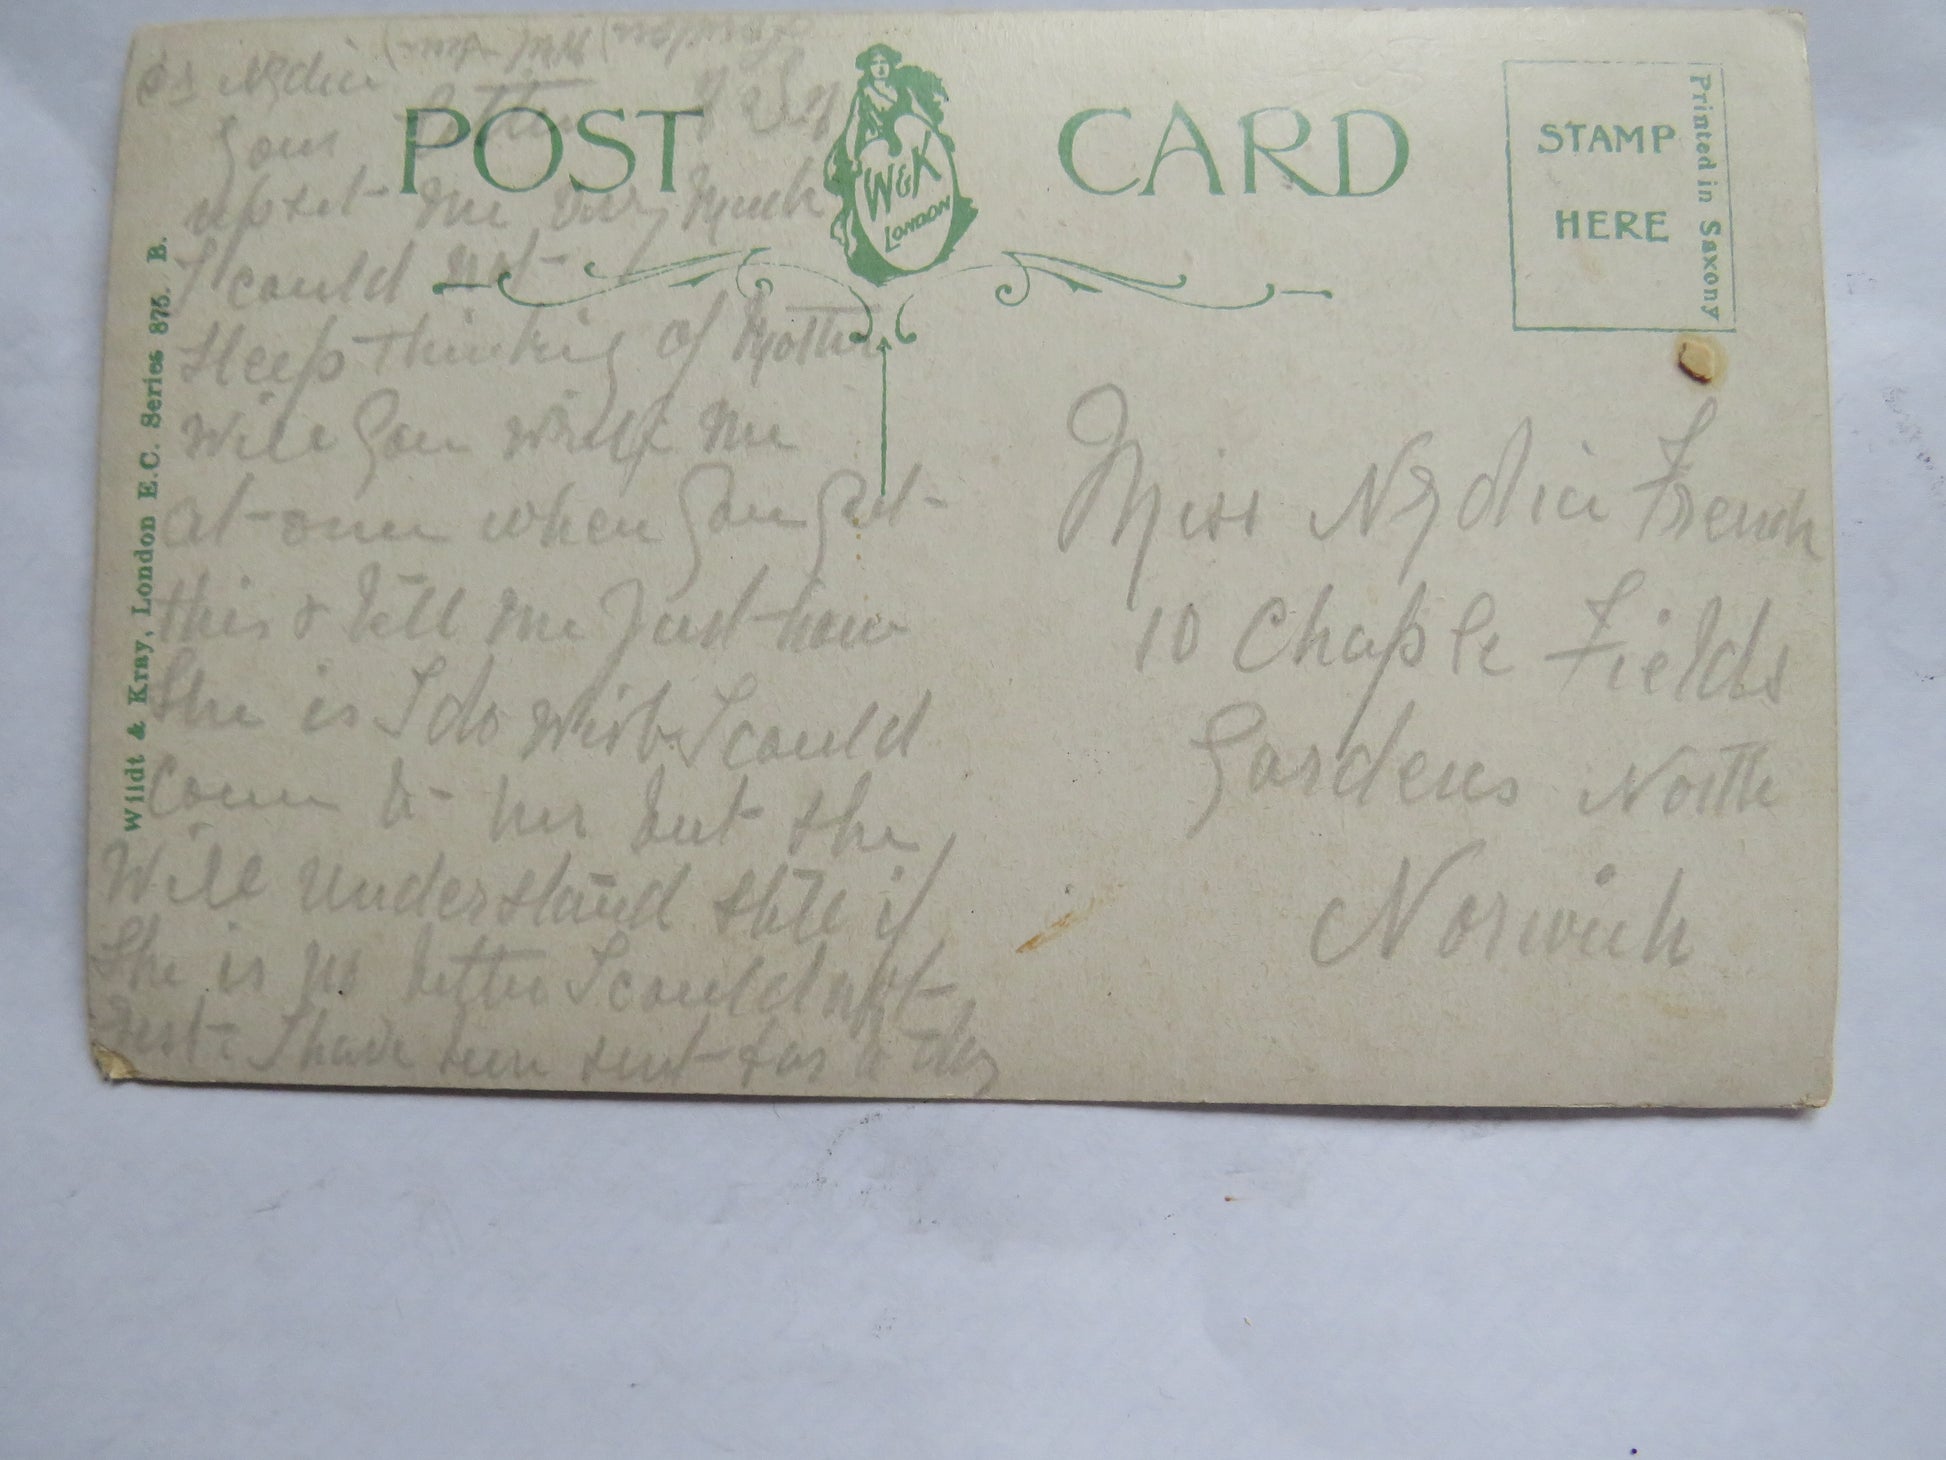 POST CARD
W & K
LONDON
STAMP
HERE
Printed in Saxony
Wildt & Kray, London E.C. Series 875. B.
Nydia
Your Letter
upset me very Much
I could not
Sleep thinking of Mother
Will you write me
at once when you get
this & tell me Just how
She is I do wish I could
Come to her but she
Will understand still if
She is no better I could not
rest I have been sent for to day
Miss Nydia French
10 Chaple Fields
Gardens North
Norwich